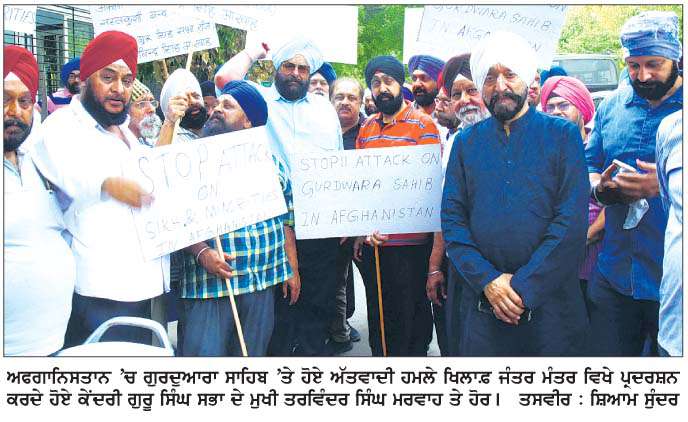 ITIES
GURDWARA SAHIB
IN AFGAN
STOP ATTACK
ON
SIK- & MINORITIES
IN AFGHANISTAN
STOP!! ATTACK ON
GURDWARA SAHIB
IN AFGHANISTAN
ਅਫਗਾਨਿਸਤਾਨ ’ਚ ਗੁਰਦੁਆਰਾ ਸਾਹਿਬ ’ਤੇ ਹੋਏ ਅੱਤਵਾਦੀ ਹਮਲੇ ਖਿਲਾਫ਼ ਜੰਤਰ ਮੰਤਰ ਵਿਖੇ ਪ੍ਰਦਰਸ਼ਨ
ਕਰਦੇ ਹੋਏ ਕੇਂਦਰੀ ਗੁਰੂ ਸਿੰਘ ਸਭਾ ਦੇ ਮੁਖੀ ਤਰਵਿੰਦਰ ਸਿੰਘ ਮਰਵਾਹ ਤੇ ਹੋਰ। ਤਸਵੀਰ : ਸ਼ਿਆਮ ਸੁੰਦਰ